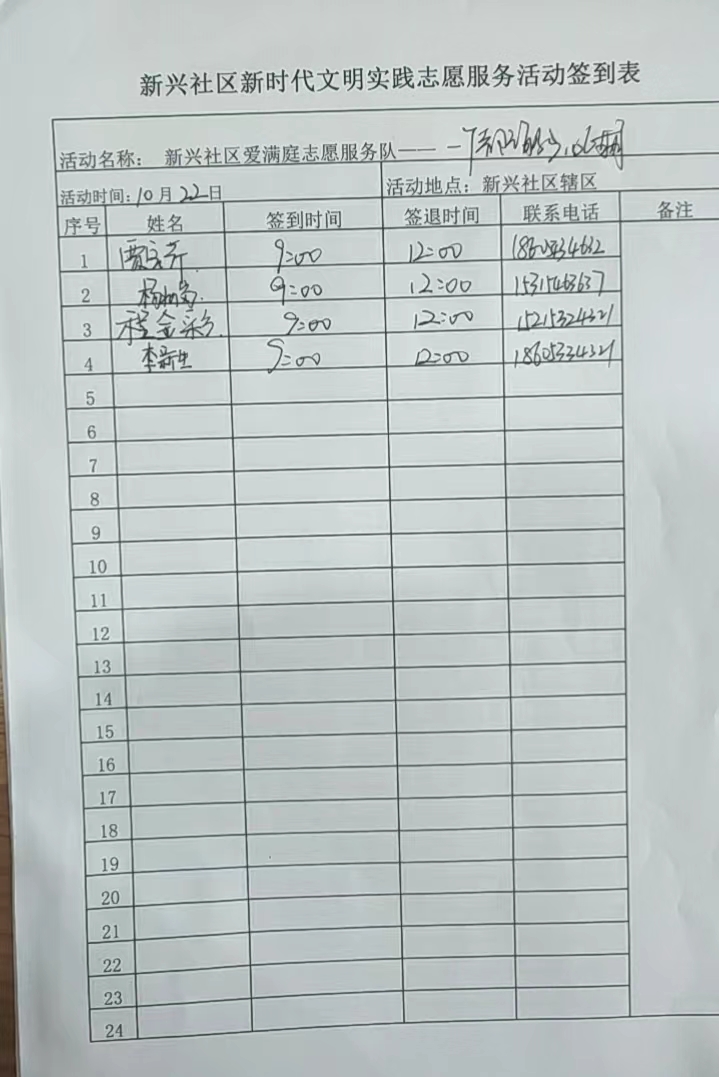 新兴社区新时代文明实践志愿服务活动签到表
活动名称： 新兴社区爱满庭志愿服务队——
活动时间：10月22日 活动地点：新兴社区辖区
序号 姓名 签到时间 签退时间 联系电话 备注
1 9:00 12:00
2 9:00 12:00
3 程金彩 9:00 12:00 15215324321
4 李新生 9:00 12:00 18605334321
5
6
7
8
9
10
11
12
13
14
15
16
17
18
19
20
21
22
23
24